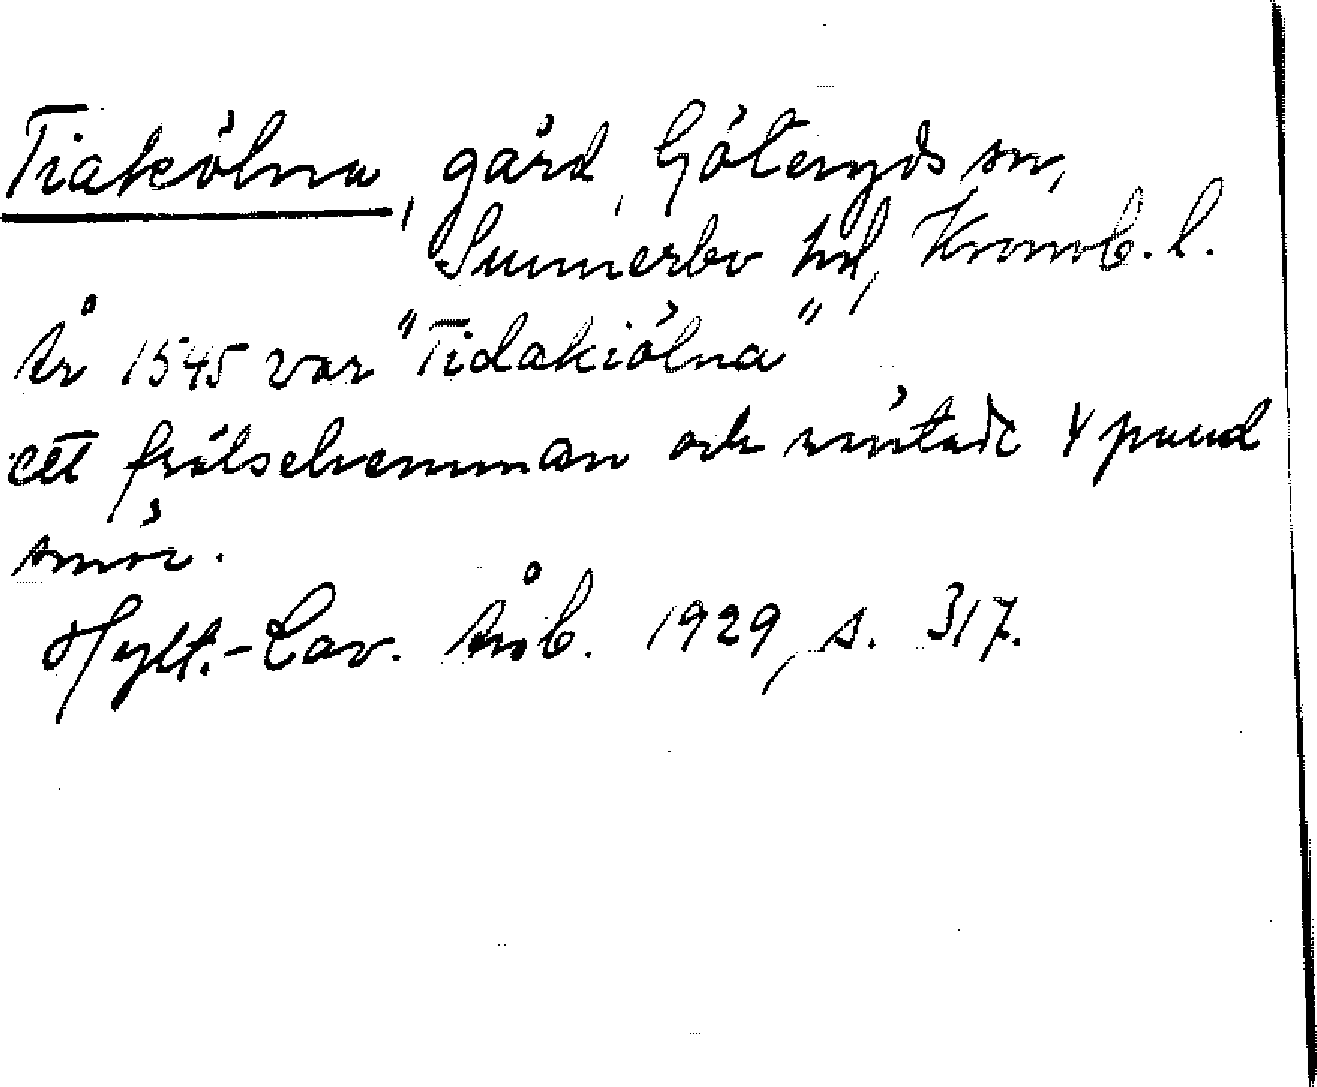 Tiakölna, gård, Göteryds sn,
Sunnerbo hd, Kronob. l.
År 1545 var "Tidakiölna"
ett frälsehemman och räntade 4 pund
smör.
Hylt.-Cav. Årsb. 1929, s. 317.